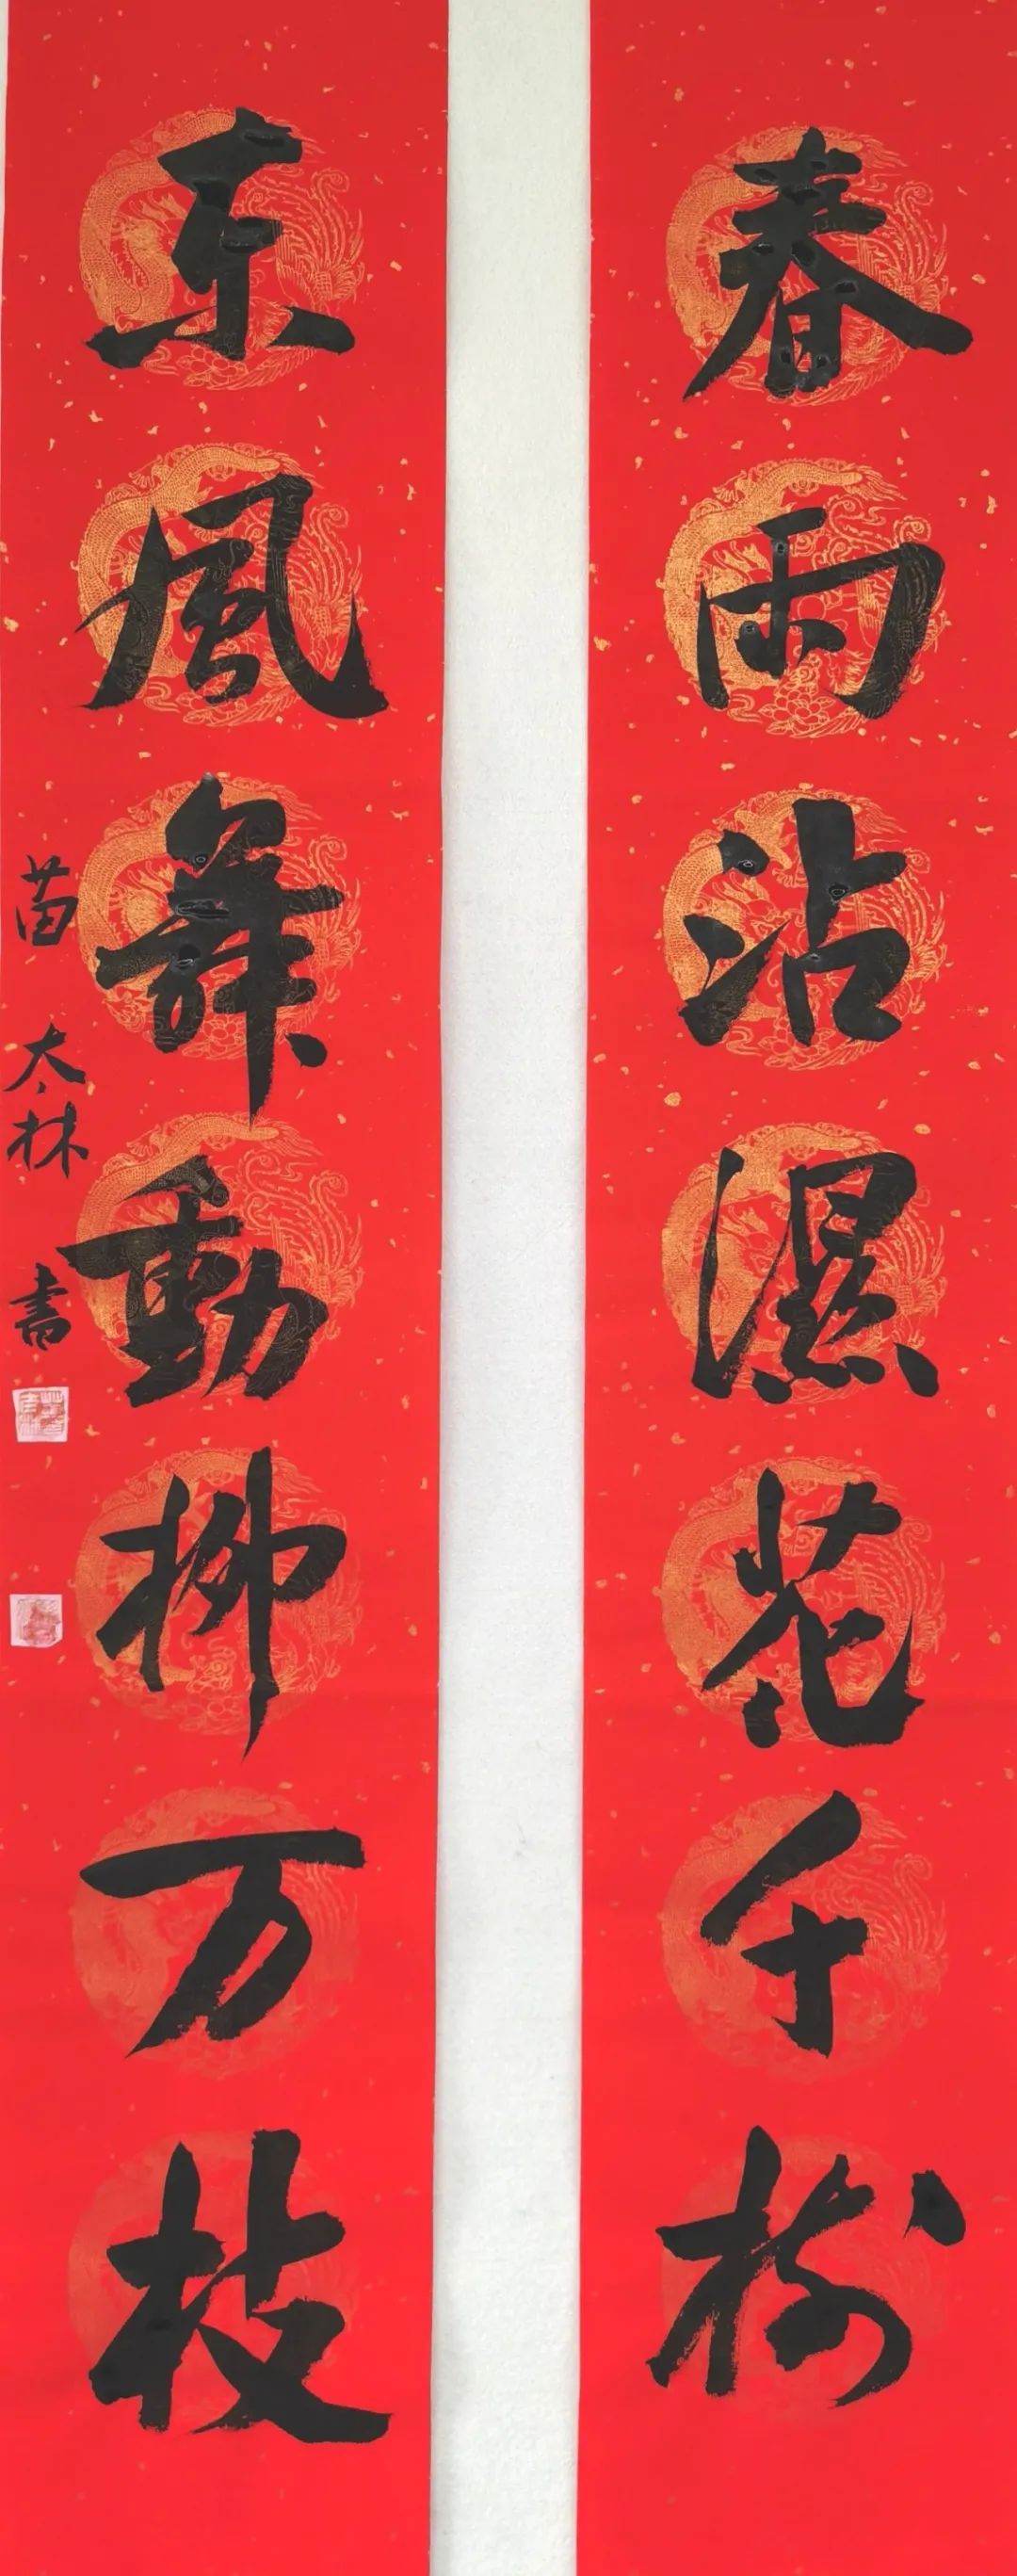 春雨沾濕花千樹
东風舞動柳万枝
苗太林書